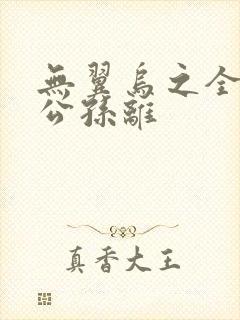 無翼烏之全
公孫離
真香大王